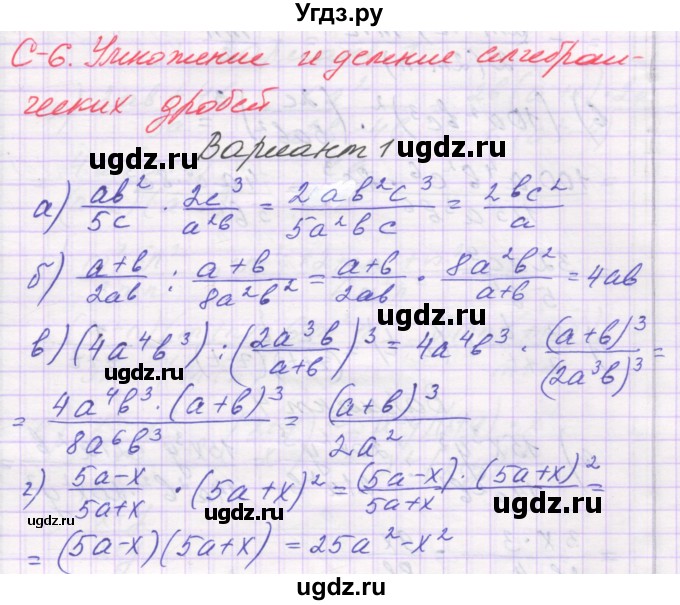 Угдз.ру
С-6. Умножение и деление алгебраи-
ческих дробей
ugdz.ru
Вариант 1 ugdz.ru
а) ab²/5c · 2c³/a²b = 2ab²c³/5a²bc = 2bc²/a
ugdz.ru
б) a+b/2ab : a+b/8a²b² = a+b/2ab · 8a²b²/a+b = 4ab
ugdz.ru
в) (4a⁴b³) : (2a³b/a+b)³ = 4a⁴b³ · (a+b)³/(2a³b)³ =
ugdz.ru
= 4a⁴b³·(a+b)³/8a⁶b³ = (a+b)³/2a²
ugdz.ru
г) 5a-x/5a+x · (5a+x)² = (5a-x)·(5a+x)²/5a+x =
ugdz.ru ugdz.ru ugdz.ru
= (5a-x)(5a+x) = 25a²-x²
ugdz.ru
ugdz.ru